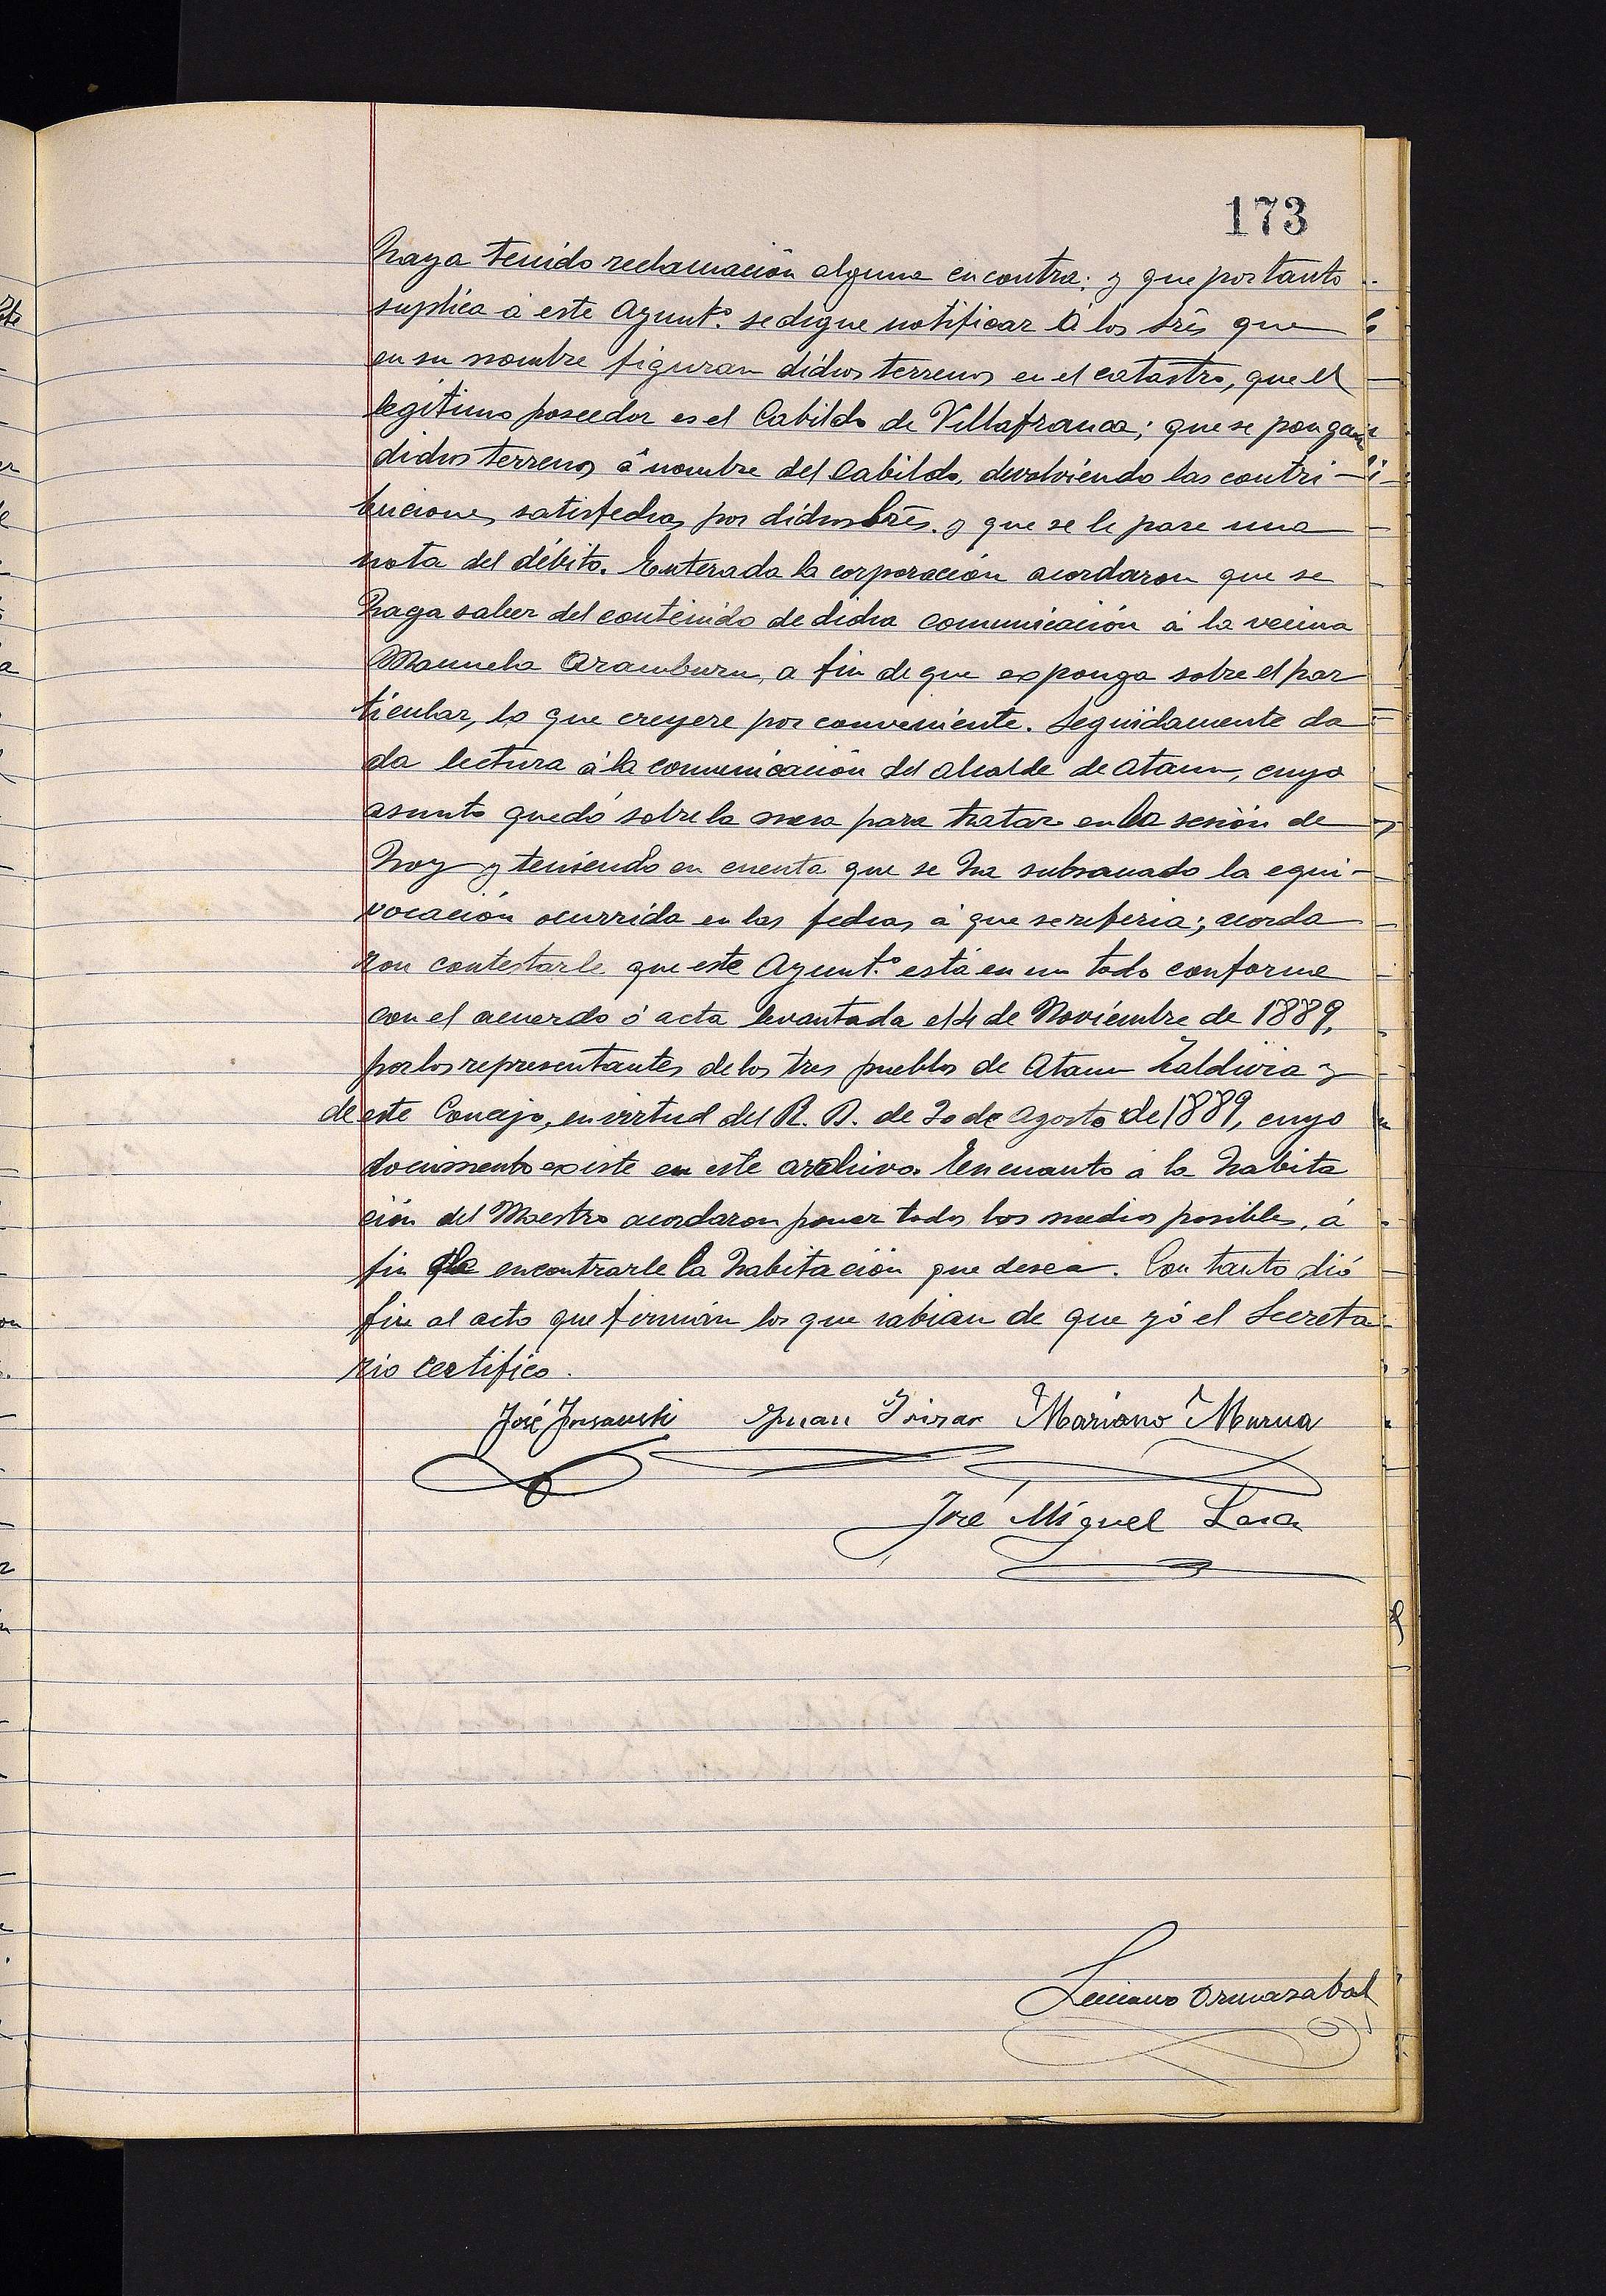 173
haya tenido reclamación alguna en contra; y que por tanto
suplica á este Ayunt.º se digne notificar á los srēs que
en su nombre figuran dichos terrenos en el catastro, que el
legítimo poseedor es el Cabildo de Villafranca; que se pongan
dichos terrenos á nombre del Cabildo, devolviendo las contri-
buciones satisfechas por dichos Srēs. y que se le pase una
nota del débito. Enterada la corporación acordaron que se
haga saber del contenido de dicha comunicación á la vecina
Manuela Aramburu, a fin de que exponga sobre el par
ticular, lo que creyere por conveniente. Seguidamente da
da lectura á la comunicación del alcalde de Ataun, cuyo
asunto quedó sobre la mesa para tratar en la sesión de
hoy y teniendo en cuenta que se ha subsanado la equi-
vocación ocurrida en las fechas á que se referia; acorda
ron contestarle que este Ayunt.º está en un todo conforme
con el acuerdo ó acta levantada el 4 de Noviembre de 1889,
por los representantes de los tres pueblos de Ataun Zaldivia y
de este Concejo, en virtud del R. D. de 30 de Agosto de 1889, cuyo
documento existe en este archivo. En cuanto á la habita
ción del Maestro acordaron poner todos los medios posibles, á
fin de encontrarle la habitación que desea. Con tanto dió
fin al acto que firman los que sabian de que yó el Secreta
rio certifico.
José Juan Irizar Mariano Murua
José Miguel Lasa
Luciano Ormazabal